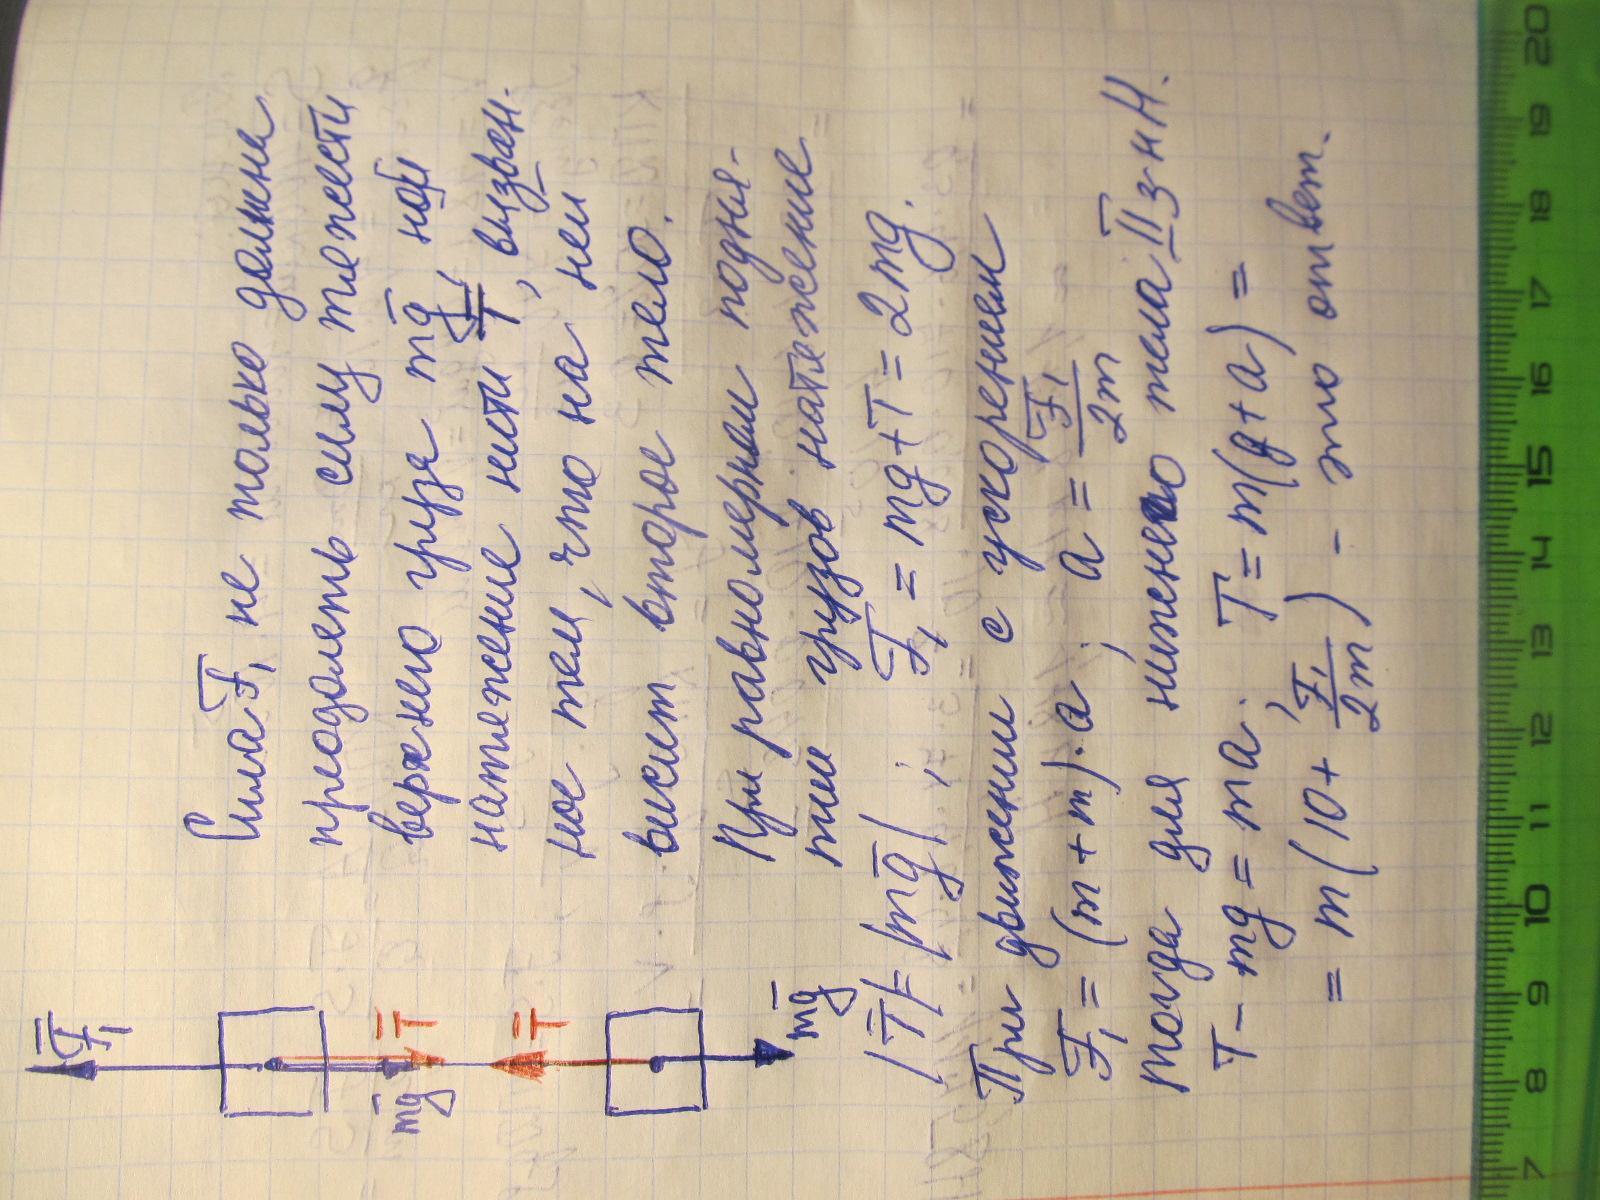 Сила F̅₁ не только должна
преодолеть силу тяжести
верхнего груза mg̅, но и
натяжение нити T̅, вызван-
ное тем, что на ней
висит второе тело.
При равномерном подня-
тии грузов натяжение
|T̅| = |mg̅| ; F̅₁ = mg + T̅ = 2mg.
При движении с ускорением
F̅₁ = (m + m)·a ; a = F̅₁/2m
тогда для нижнего тела II з-н Н.
T – mg = ma ; T = m(g + a) =
= m(10 + F̅₁/2m) – это ответ.
F̅₁
mg̅
T̅
T̅
mg̅
7 8 9 10 11 12 13 14 15 16 17 18 19 20